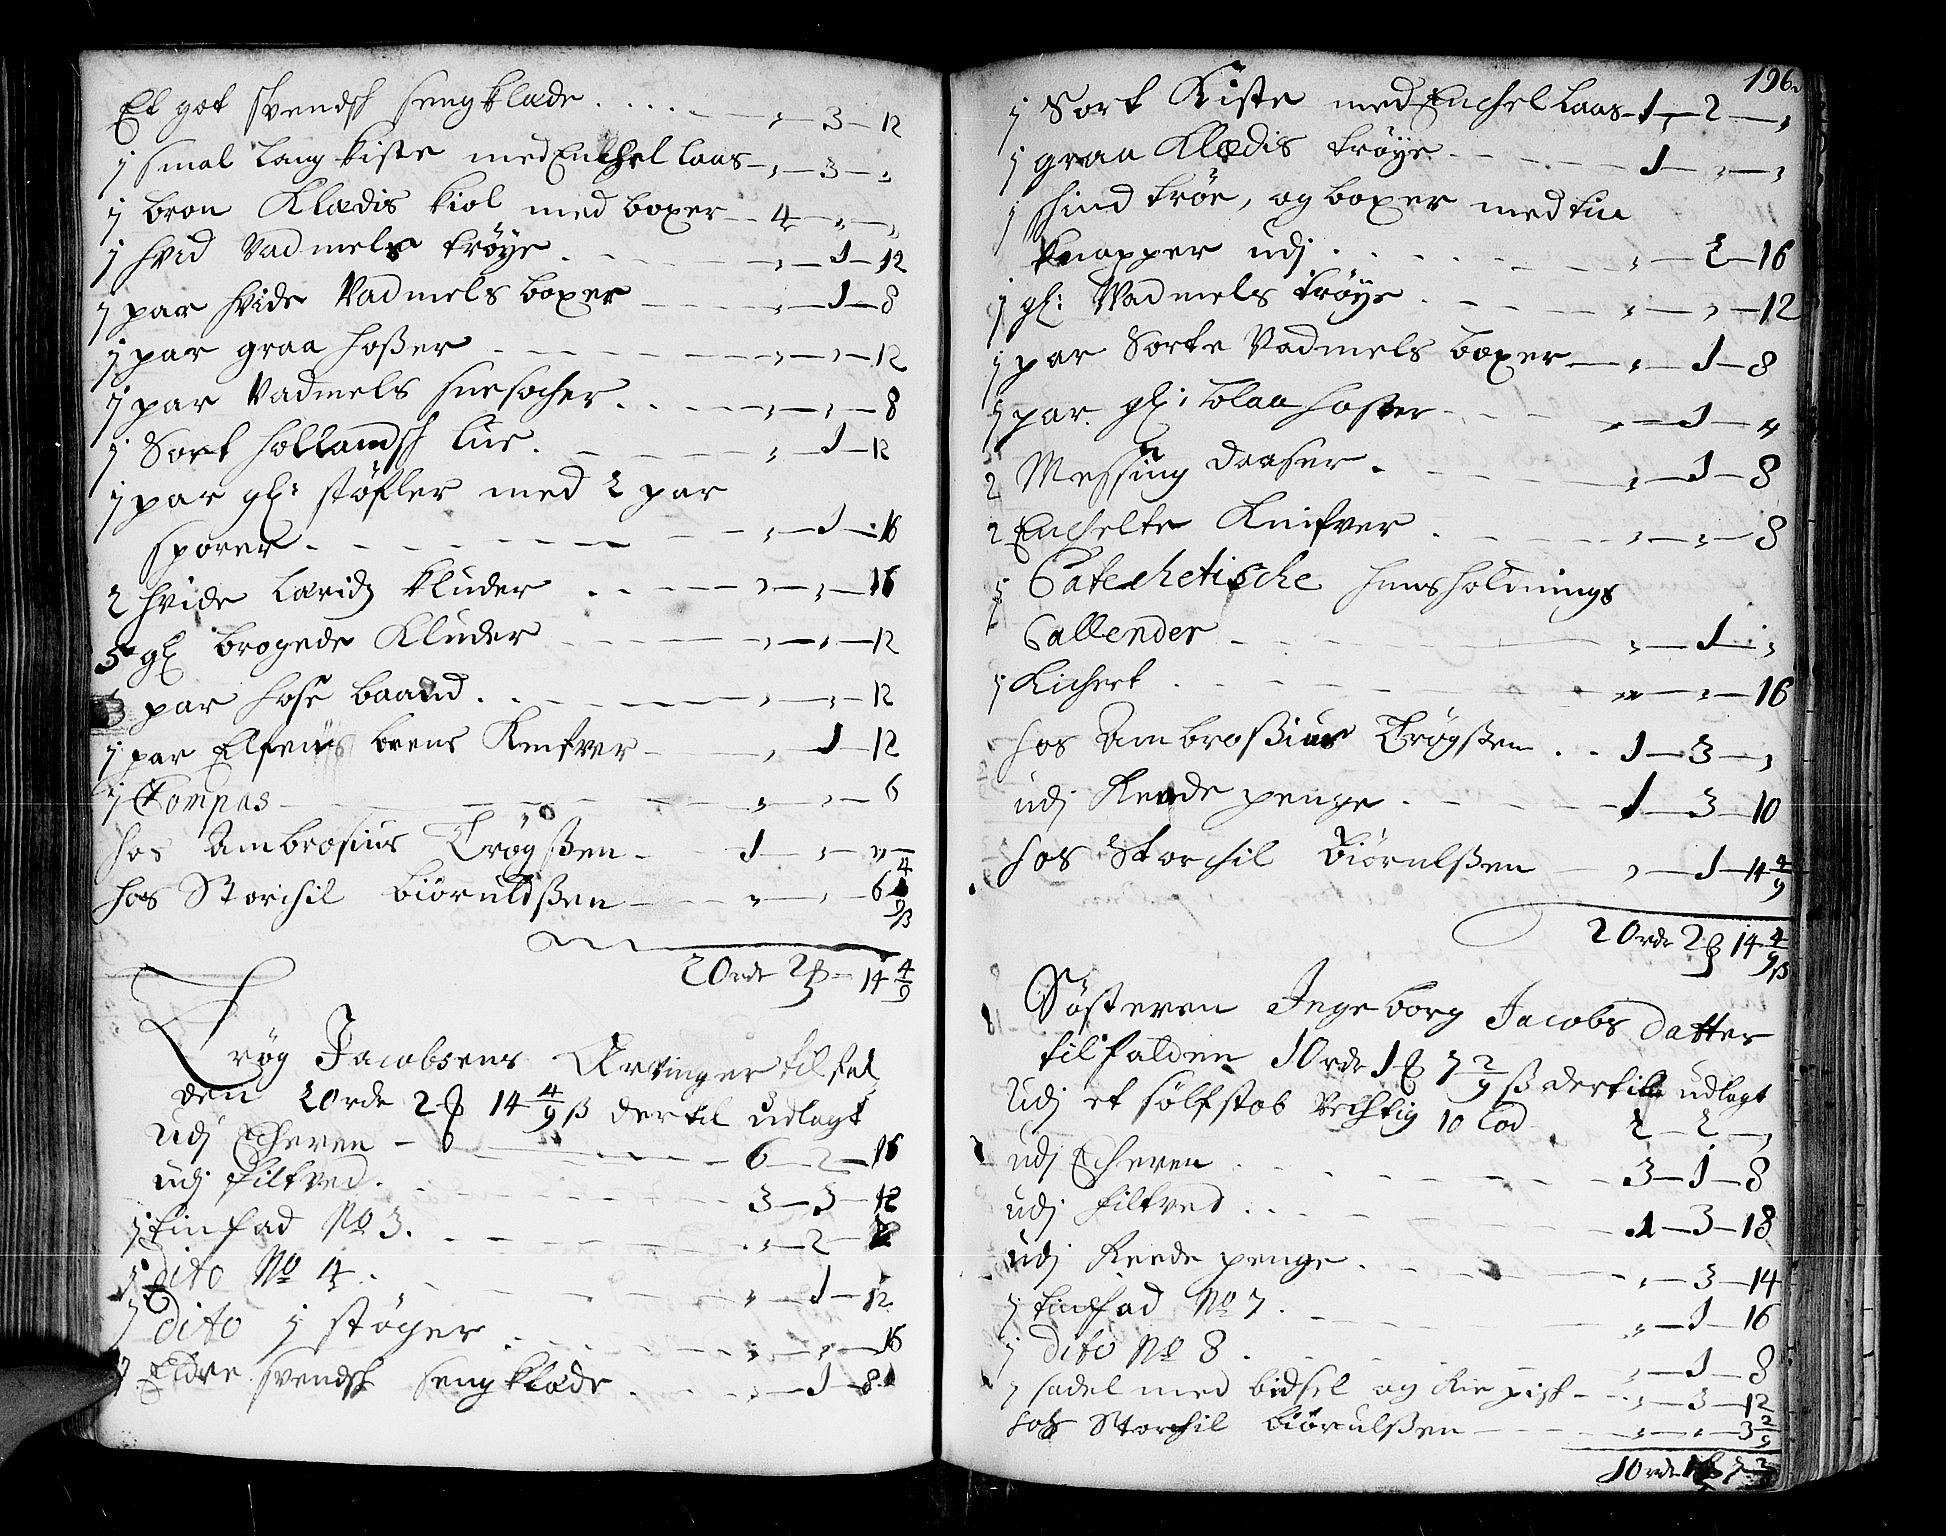 Et got svendsk sengklæde . . . . „ — 3 — 12
j smal lang kiste med Enchel laas — „ — 3 — „
j bron Klædis kiol med boxer — 4 — „ — „
j hvid Vadmels trøye . „ — 1 — 12
j par hvide Vadmels boxer — „ — 1 — 8
j par graa hoßer — „ — „ — 12
j par Vadmels snesocher . . „ — „ — 8
j Sort hollandsk lue . „ — 1 — 12
j par gl: støfler med 2 par
sporer . — „ — 1 — 16
2 hvide lærids kluder . . „ — „ — 16
5 gl brogede Kluder — „ — „ — 12
3 par hose baand . . „ — „ — 12
j par Elfens beens Knifver — „ 1 — 12
j Compas — „ — „ — 6
hos Ambrosius Trøgßen — 1 — „ — „
hos Storchil biøruldßen — „ — „ — 6 4/9 ß
20 rdr 2 ß — 14 4/9
Trøg Jacobsens Arvinger tilfal-
den 20 rdr 2 ß 14 4/9 ß dertil udlagt
Udj Echeren — 6 — 2 — 16
udj Filtved . 3 — 3 — 12
j tinfad No 3 . „ — 2 —
j dito No 4 . „ — 1 — 12
j Dito j støger . „ — „ — 16
j Eldre svendsk sengklæde . „ — 1 — 8
196.
j Sort Kiste med Enchel laas — 1 — 2 — „
j graa Klædis trøye . 1 — „ — „
j skind trøe, og boxer med tin
knapper udj . „ — 2 — 16
j gl: Vadmels trøye . „ — „ — 12
j par Sorte Vadmels boxer — „ — 1 — 8
j par. gl: blaa hoster — „ — 1 — „
2 Messing daaser . „ — 1 — 8
2 Enchelte Knifver . „ — „ — 8
j Catechetische huusholdnings
Callender — „ — 1 — „
j Kichert . „ — „ — 16
hos Ambroßius Trøgßen . . 1 — 3 — „
udj Rede penge . 1 — 3 — 10
hos Storchil Biørulßen — „ — 1 — 11 4/9
20 rdr 2 ß 14 4/9 ß
Søsteren Ingeborg Jacobs Datter
tilfalden 10 rdr 1 ß 7 2/9 ß dertil udlagt
Udj et sølfstob Vechtig 10 Lod . 2 — 2 — „
udj Echeren . 3 — 1 — 8
udj Filtved . . 1 — 3 — 18
udj Reede penge . „ — 3 — 14
j tinfad No 7 . „ — 1 — 16
j Dito No 8 . „ — 1 — 8
j sadel med bidsel og Rie pisk — „ — 3 — 12
hos Storchil biørulßen — „ — „ — 3 2/9
10 rdr 1 ß 7 2/9